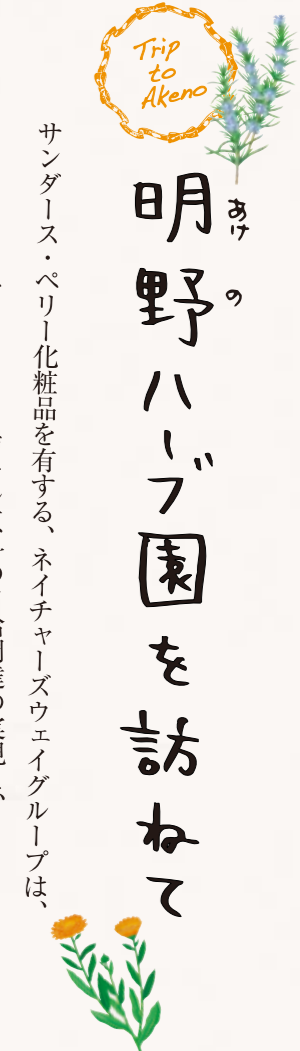 Trip
to
Akeno
明野ハーブ園を訪ねて
あけの
サンダース・ペリー化粧品を有する、ネイチャーズウェイグループは、